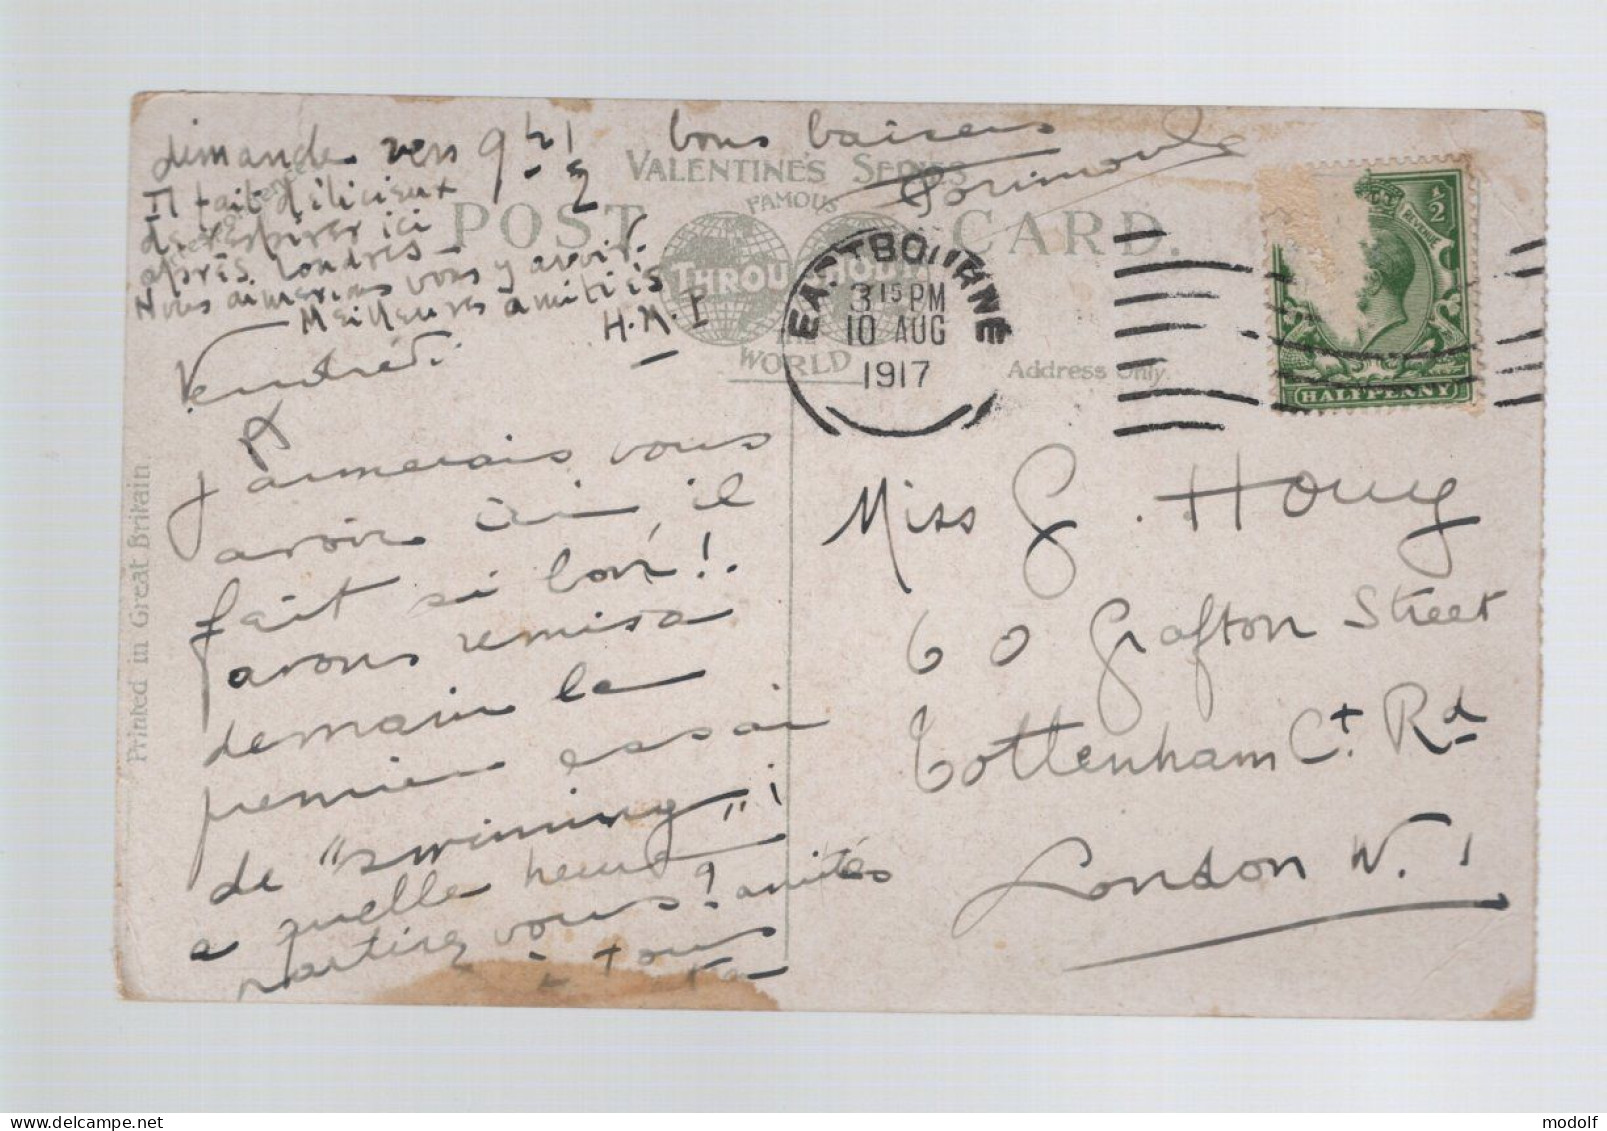 dimanche vers 9 h 1/2
bons baisers
Il fait délicieux
de respirer ici
après Londres -
Nous aimerions vous y avoir.
Meilleures amitiés
H.M.P
VALENTINE'S SERIES
FAMOUS
POST CARD.
THROUGHOUT
THE
WORLD
Address Only.
EASTBOURNE
3 15 PM
10 AUG
1917
REVENUE
1/2
HALFPENNY
Vendredi
J'aimerais vous
avoir ici, il
fait si bon!.
avons remis à
demain le
premier essai
de "swimming"!
a quelle heure
partirez vous? amitiés
à tous
Printed in Great Britain.
Miss G. Houy
60 Grafton Street
Tottenham Ct. Rd
London W. 1
modolf